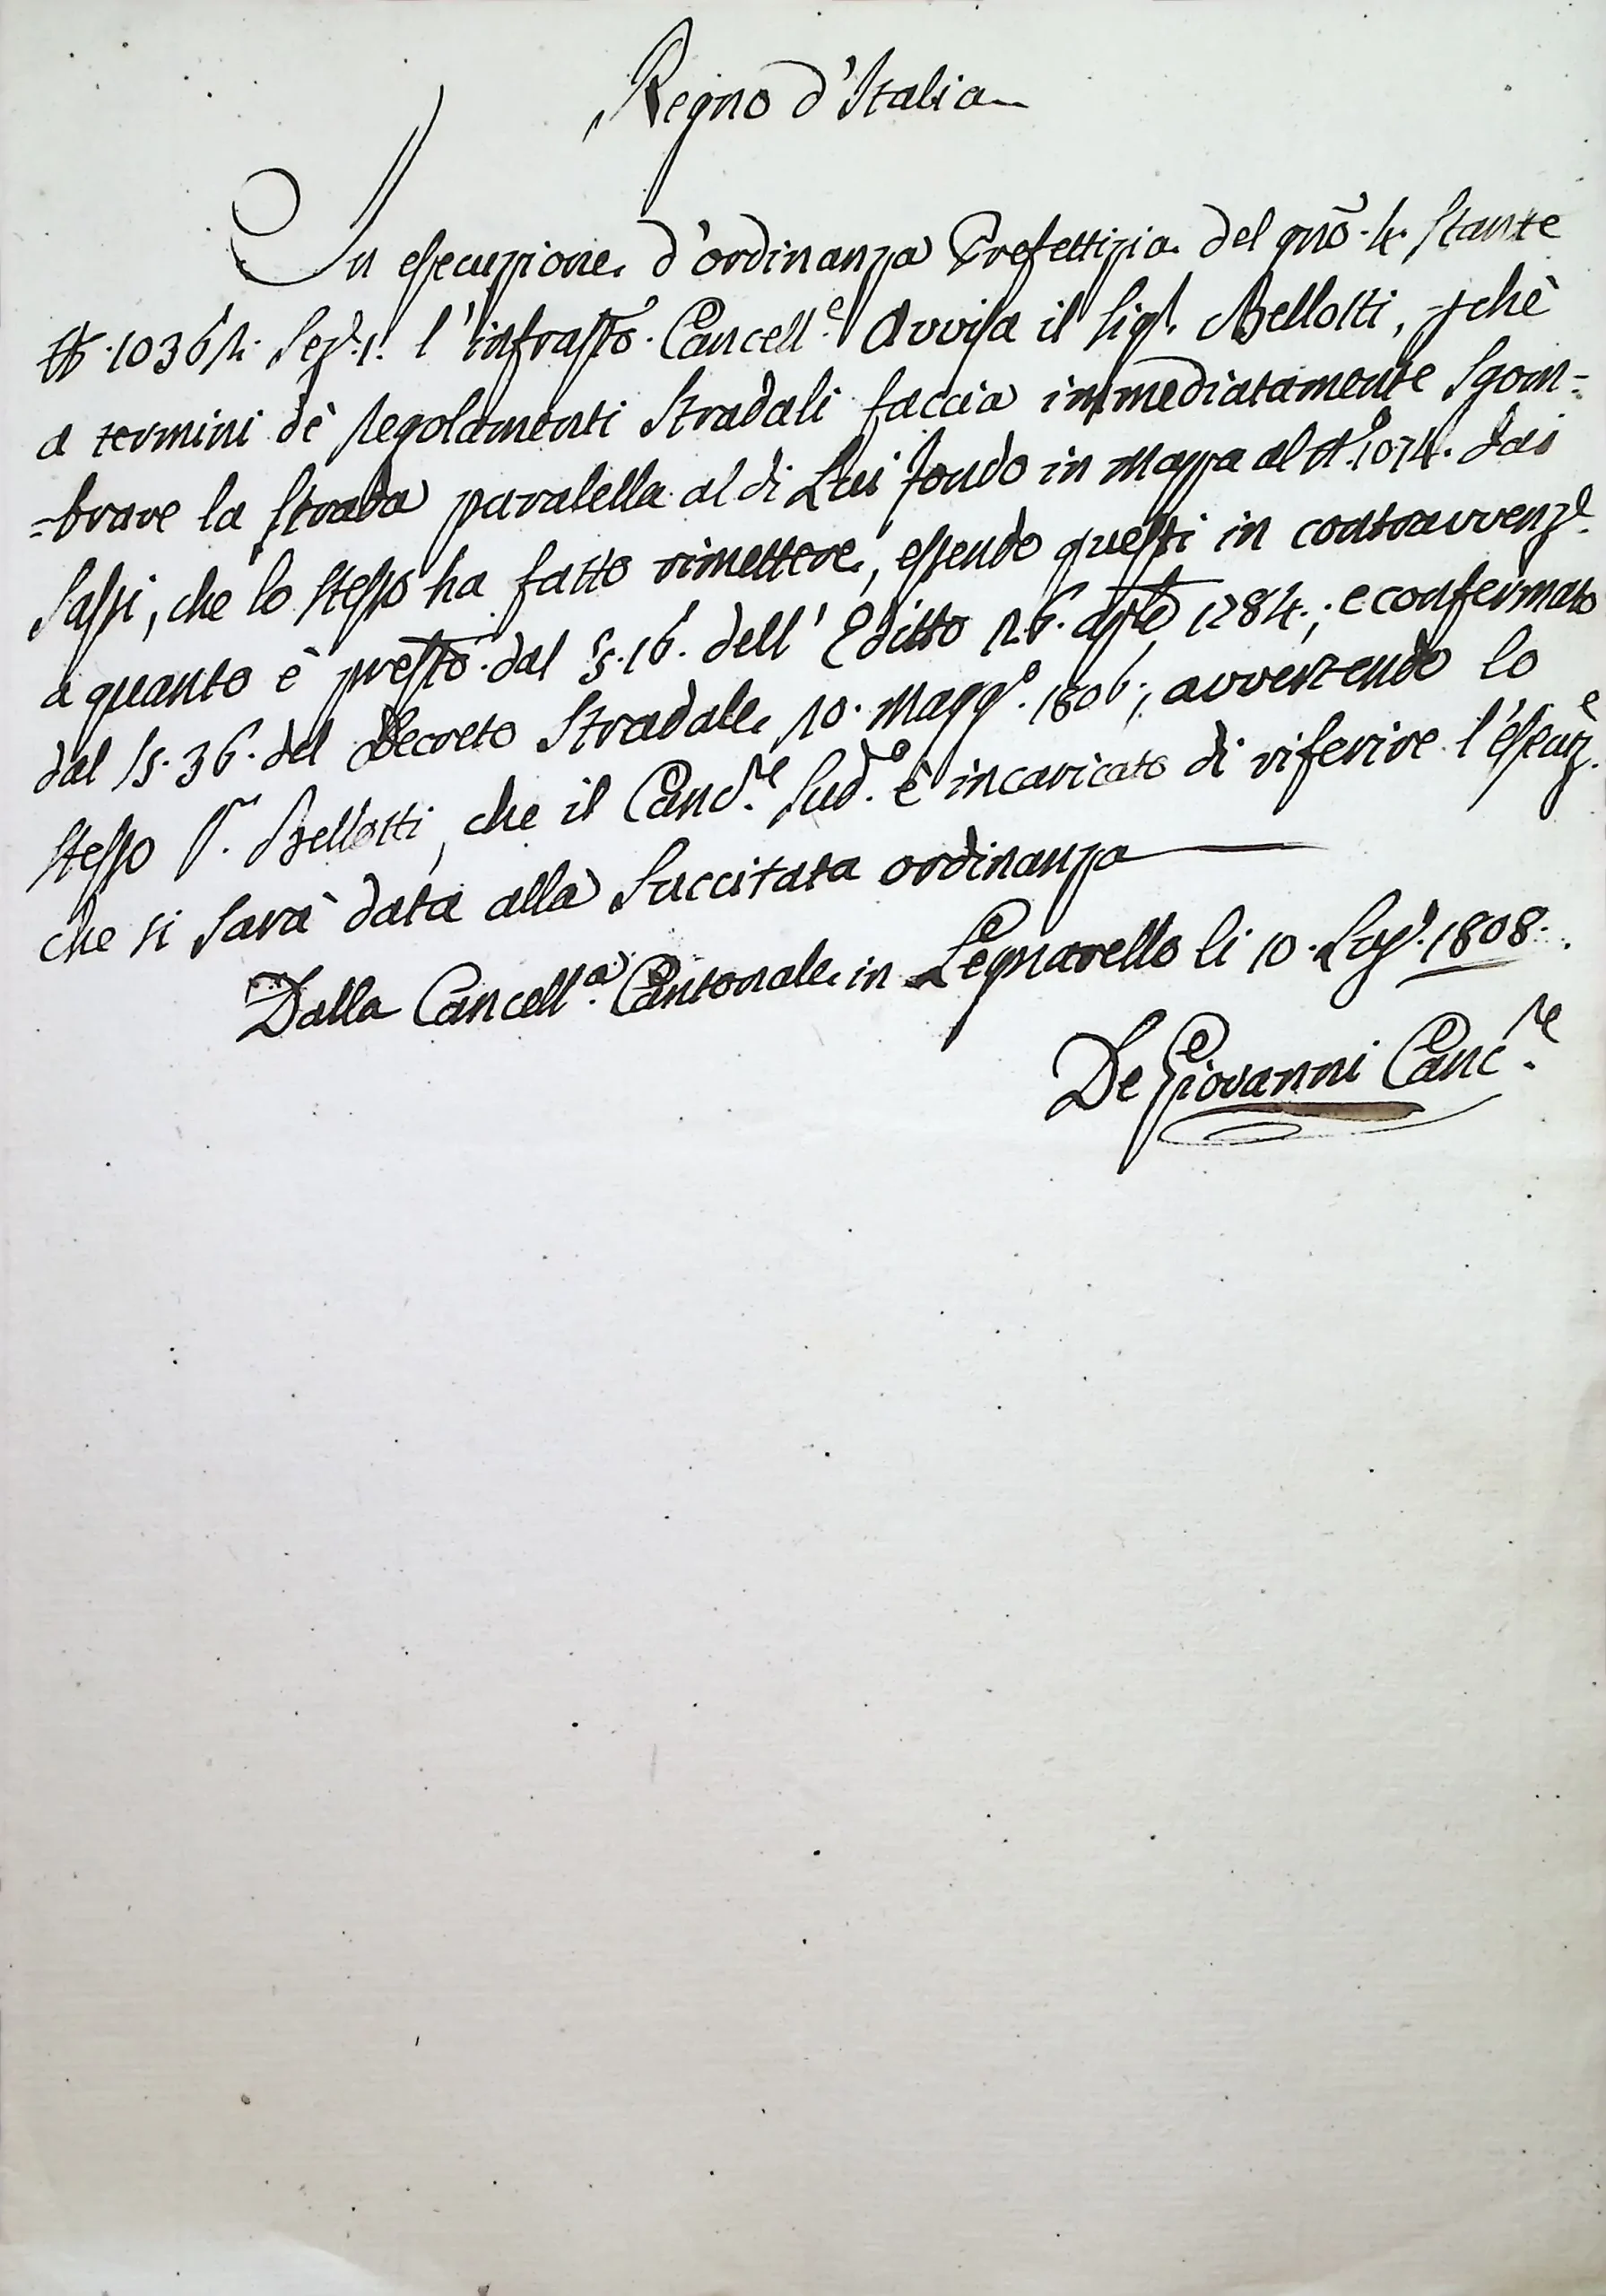 Regno d'Italia
In esecuzione d'ordinanza Prefettizia del gno. 4. stante
N. 10362. Sez. 1. l'infrastto. Cancell.e Avvisa il Sigr. Bellotti, pchè
a termini dè Regolamenti Stradali faccia immediatamente sgom=
=brare la strada paralella al di Lui fondo in Mappa al N.o 1074. dai
Sassi, che lo stesso ha fatto rimettere, essendo questi in contravvenz.e
a quanto è presto. dal §. 16. dell'Editto 26. aple 1784.; e confermato
dal §. 36. del Decreto Stradale 20. Magg.o 1806.; avvertendo lo
stesso Sr. Bellotti, che il Canc.re Sud.o è incaricato di riferire l'esecuz.e
che si sarà data alla succitata ordinanza
Dalla Cancell.a Cantonale in Legnarello li 10. 1808.
De Giovanni Canc.re